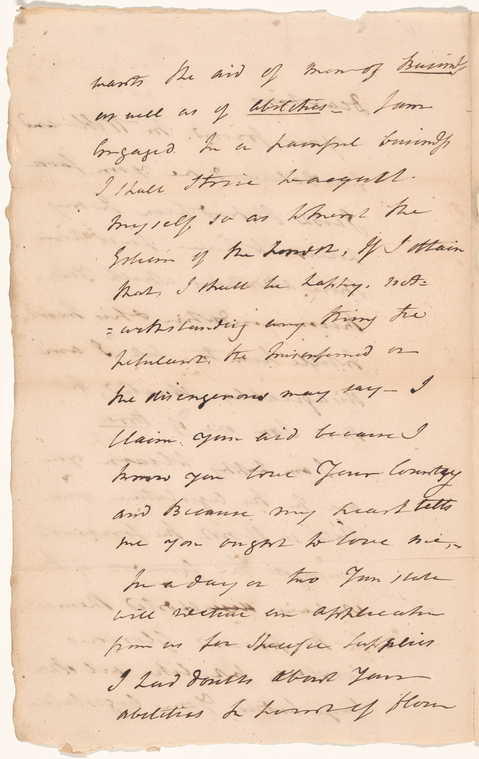 wants the aid of men of Business
as well as of abilities – I am
Engaged in a painful business
I shall strive to acquitt
myself, so as to merit the
Esteem of the honest, If I obtain
that, I shall be happy, not=
=withstanding any thing the
petulant, the misinformed or
the disingenuous may say – I
Claim your aid because I
know you love Your Country
and Because my heart tells
me you ought to love me,–
In a day or two Your state
will receive an application
from us for Specific Supplies
I had doubts about Your
abilities in point of flour